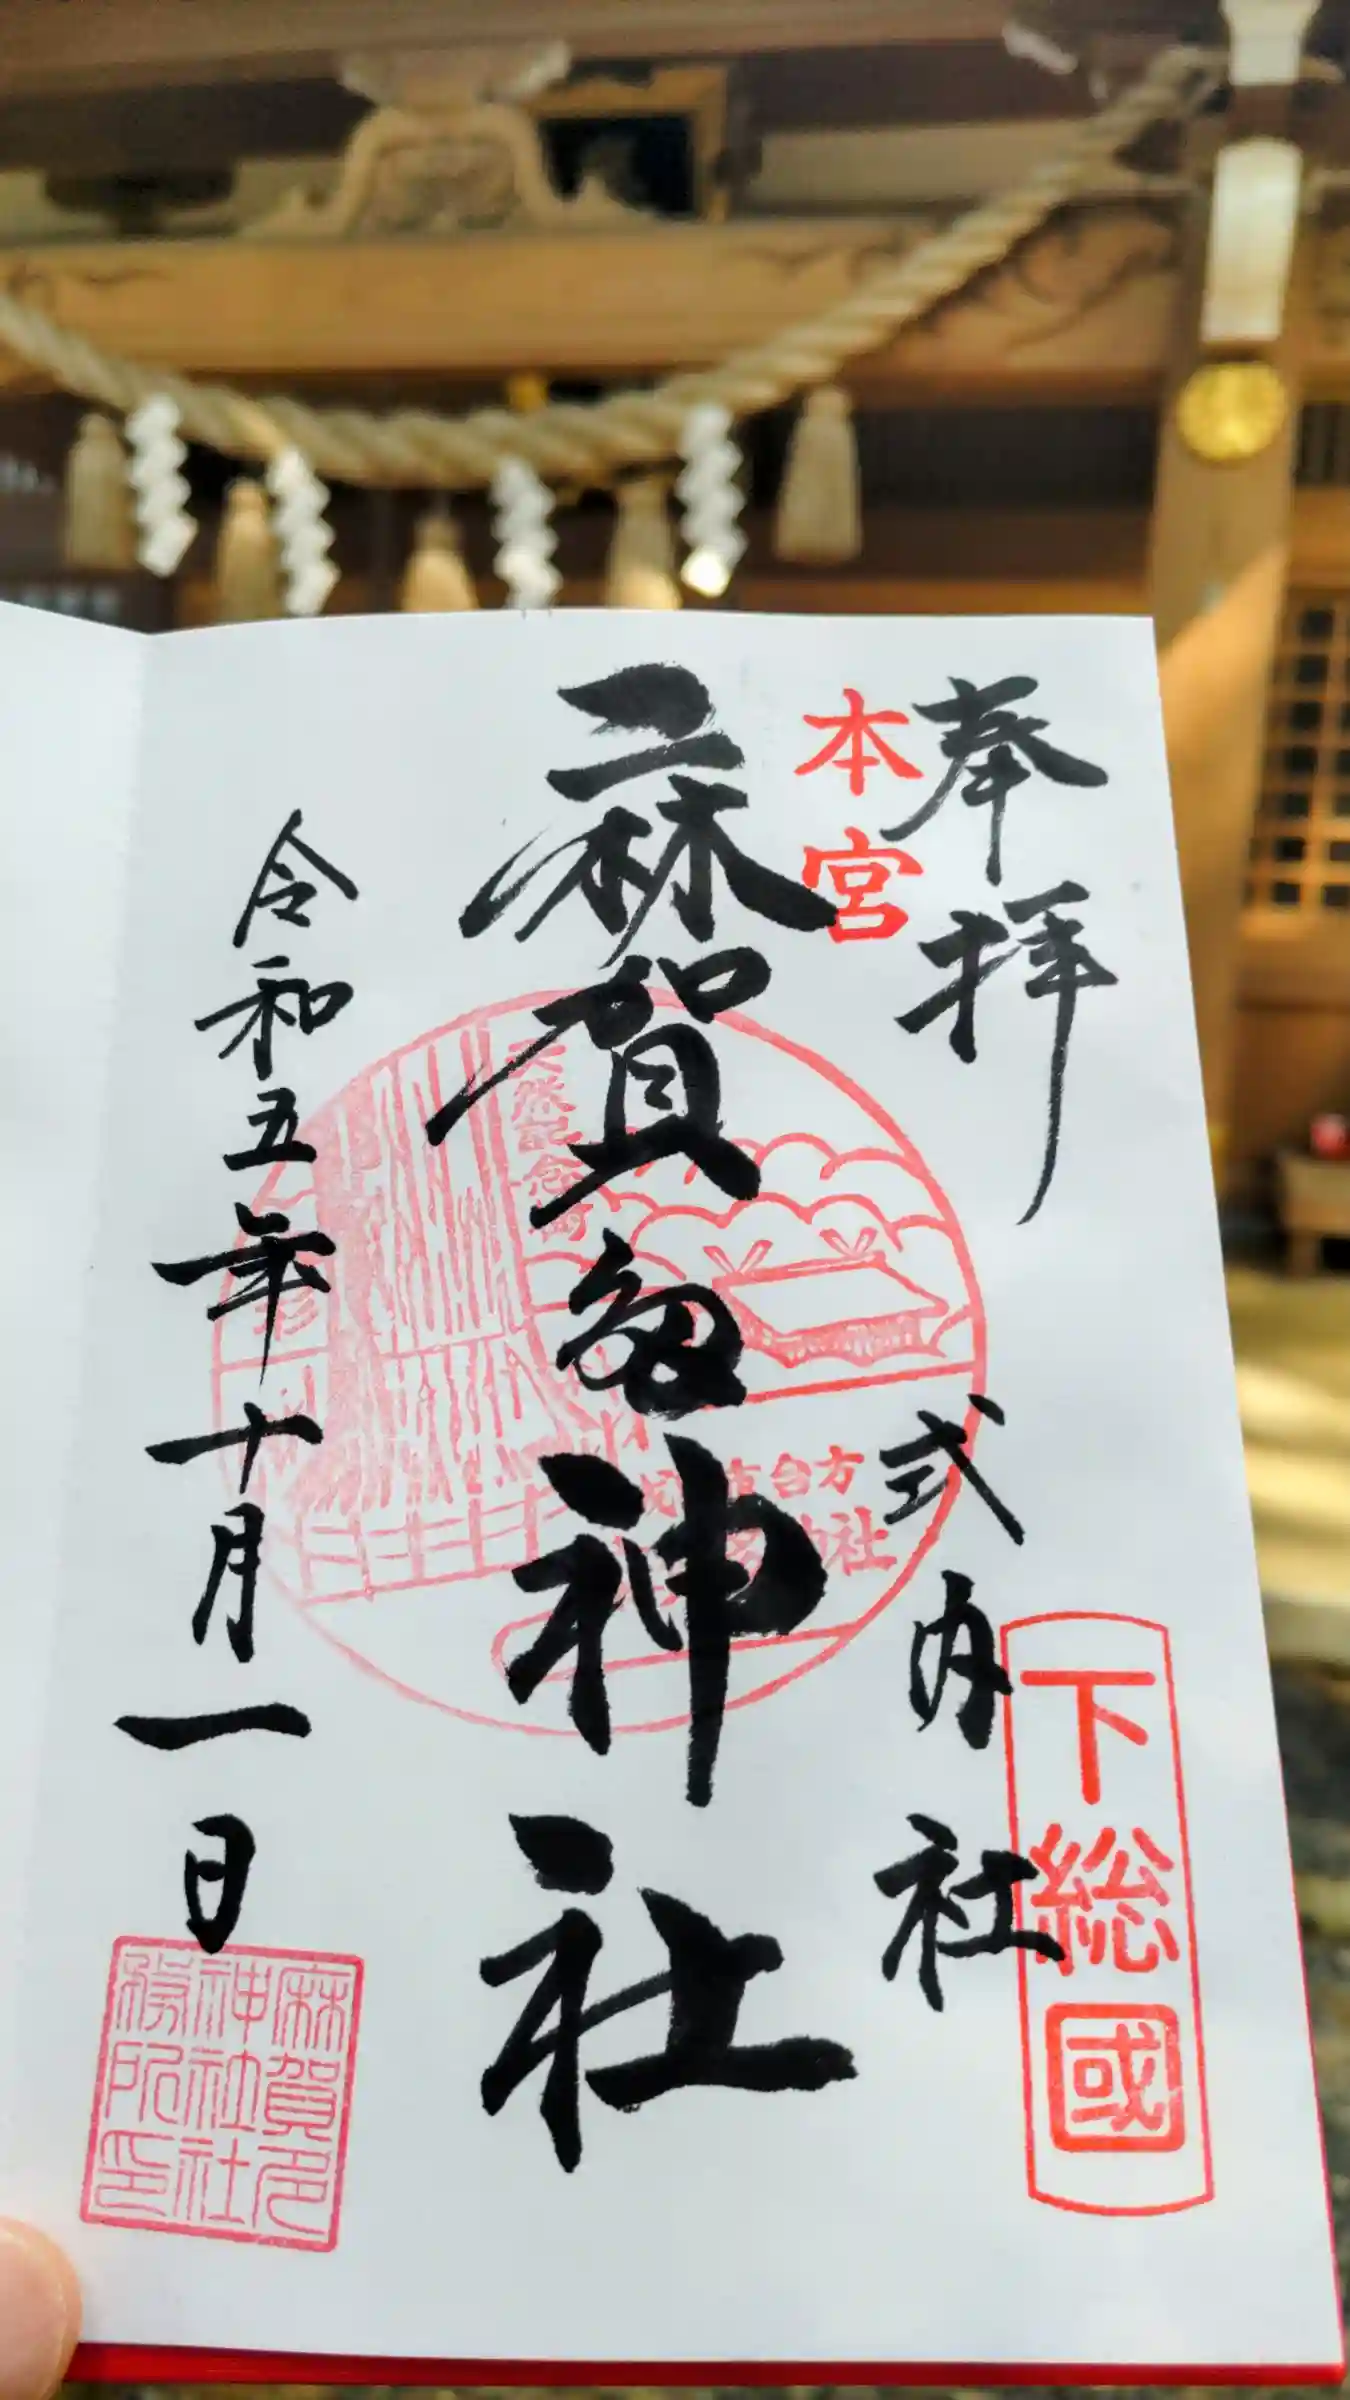 奉拝
下総國
式内社
本宮
麻賀多神社
天然記念物
大杉
台方
社
令和五年十月一日
麻賀多
神社社
務所印